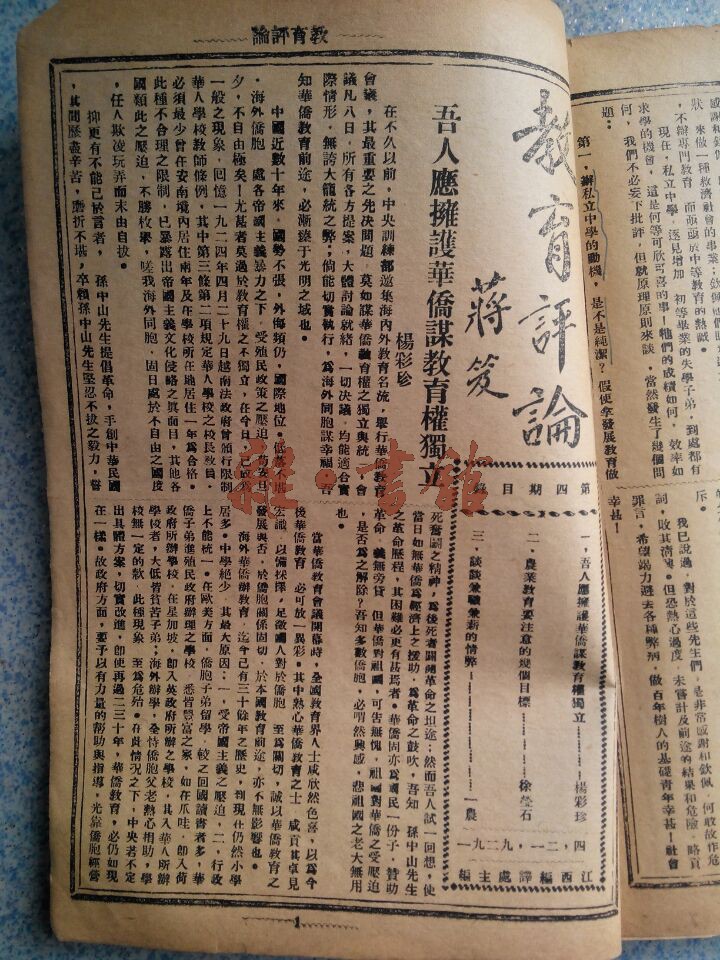 狀，來做一種救濟社會的事業；欽佩他們
現在，私立中學，逐見增加，初等畢業的失學子弟，到處都有
求學的機會，這是何等可欣可喜的事！牠們的成績如何，效率如
何，我們不必妄下批評，但就原理原則來談，當然發生了幾個問
題：
第一，辦私立中學的動機，是不是純潔？假使拿發展教育做
斥。
我已說過，對於這些先生們，是非常感謝和欽佩，何敢故作危
詞，敗其清興。但恐熱心過度，未嘗計及前途的結果和危險，略貢
罪言，希望竭力避去各種弊病，做百年樹人的基礎青年幸甚！社會
幸甚！
教育評論
教育評論
蔣笈
第四期目錄
一、吾人應擁護華僑謀教育權獨立——楊彩珍
二、農業教育要注意的幾個目標——徐瑩石
三、談談兼職兼薪的情弊——一農
四，二一，一九二九
江西編譯處主編
吾人應擁護華僑謀教育權獨立
楊彩珍
在不久以前，中央訓練部邀集海內外教育名流，舉行華僑教育
會議，其最重要之先决問題，莫如謀華僑教育權之獨立與統一，會
議凡八日，所有各方提案，大體討論就緒，一切决議，均能適合實
際情形，無誇大籠統之弊；倘能切實執行，爲海外同胞謀幸福，吾
知華僑教育前途，必漸臻于光明之域也。
中國近數十年來，國勢不張，外侮頻仍，國際地位，低落萬狀
，海外僑胞，處各帝國主義暴力之下，受殖民政策之壓迫，
夕，不自由極矣！尤甚者莫過於教育權之不獨立，在今日，已成爲
一般之現象，回憶一九二四年四月二十九日越南法政府曾頒行限制
華人學校教師條例，其中第三條第二項規定華人學校之校長教員，
必須最少曾在安南境內居住兩年及在學校所在地居住一年爲合格。
此種不合理之限制，已暴露出帝國主義文化侵略之眞面目，其他各
國類此之壓迫，不勝枚舉，嗟我海外同胞，固日處於不自由之國度
，任人欺凌玩弄而末由自拔。
抑更有不能已於言者，孫中山先生提倡革命，手創中華民國
，其間歷盡辛苦，磨折不堪，卒賴孫中山先生堅忍不拔之毅力，奮
死奮鬭之精神，爲後死者闢與革命之坦途；然而吾人試一回想，使
當日如無華僑爲經濟上之援助，爲革命之鼓吹，吾知孫中山先生
之革命歷程，其困難必更有甚焉者。華僑固亦爲國民一份子，贊助
革命，義無旁貸，但華僑對祖國，可告無愧，祖國對華僑之受壓迫
，是否爲之解除？吾知多數僑胞，必喟然興感，悲祖國之老大無用
也。
當華僑教育會議開幕時，全國教育界人士咸欣然色喜，以爲今
後華僑教育，必可放一異彩。其中熱心華僑教育之士，咸貢其卓見
宏識，以備採擇，足徵國人對於僑胞，至爲關切，誠以華僑教育之
發展與否，於僑胞關係固切，於本國教育前途，亦不無影響也。
海外華僑辦教育，迄今已有三十餘年之歷史，到現在仍然小學
居多。中學絕少，其最大原因：一，受帝國主義之壓迫，二，行政
上不能統一。在歐美方面，僑胞子弟留學，較之回國讀書者多，華
僑子弟進殖民政府辦理之學校，悉皆豐富之家，如在爪哇，卽入荷
政府所辦學校，在星加坡，卽入英政府所辦之學校，其入華人所辦
學校者，大低皆貧苦子弟；海外辦學，全恃僑胞父老熱心相助，學
校無一定的欵，此種現象，至爲危殆。在此情况之下，中央若不定
出具體方案，切實改進，卽使再過二三十年，華僑教育，必仍如現
在一樣。故政府方面，要予以有力量的幫助與指導，光靠僑胞經營
1
雜·書館